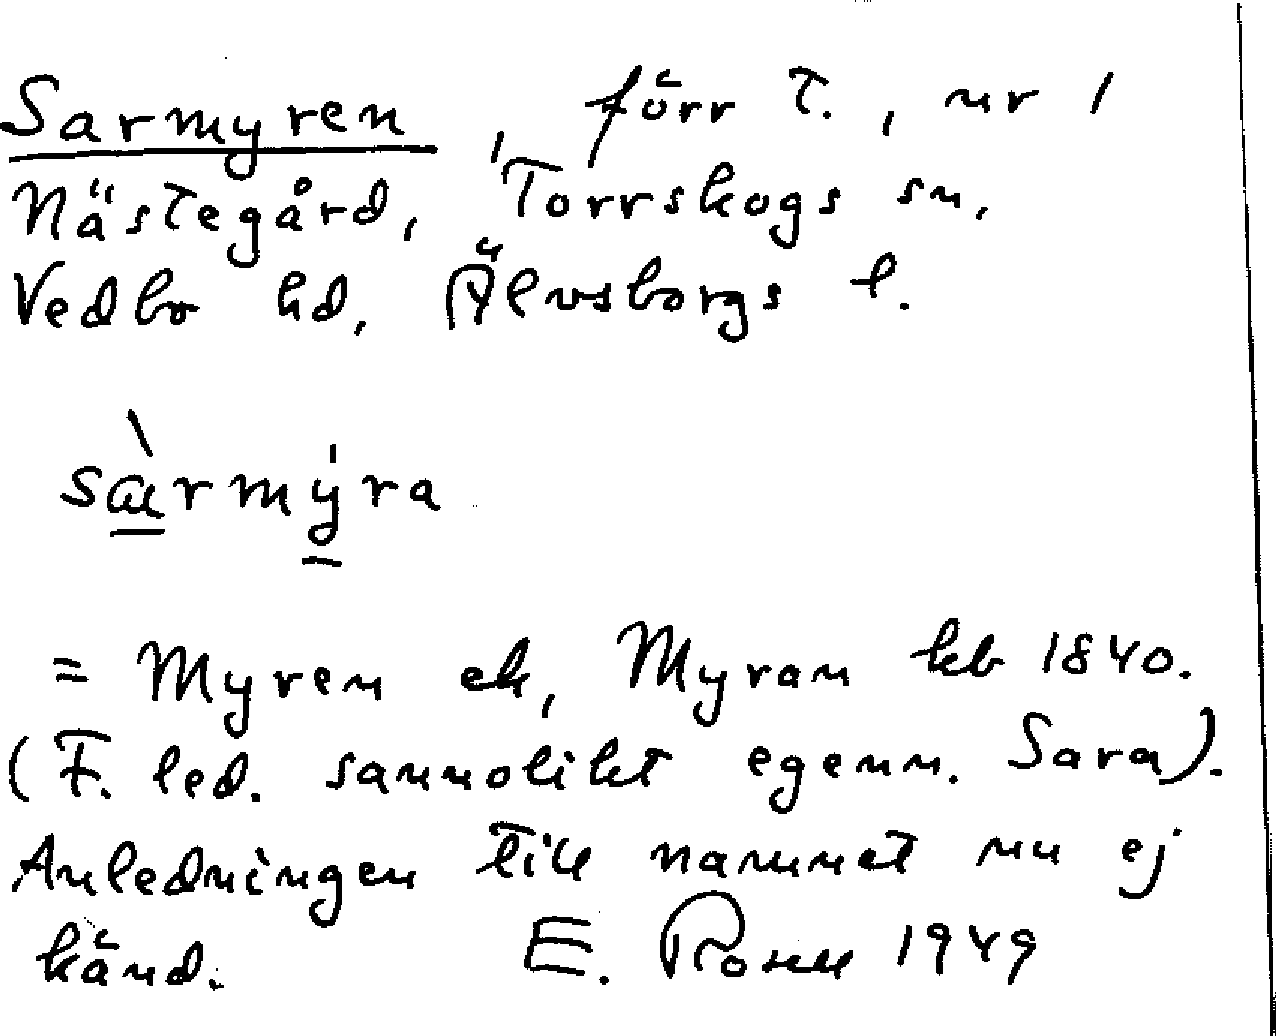 Sarmyren, förr T., nr 1
Nästegård, Torrskogs sn,
Vedbo hd, Älvsborgs l.
sàrmýra
= Myren ek, Myran kb 1840.
(F. led. sannolikt egenn. Sara).
Anledningen till namnet nu ej
känd. E. Rosell 1949